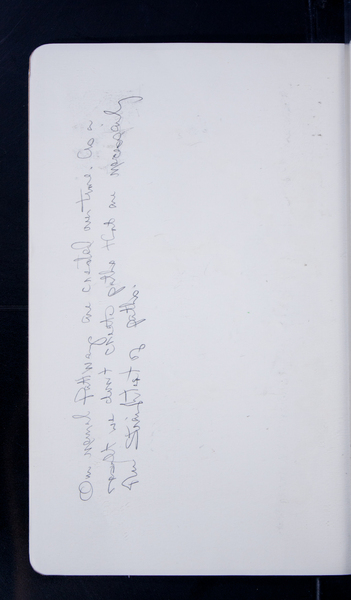 Our neural Pathways are created over time. As a
result we don't create paths that are necessarily
the straightest of paths.